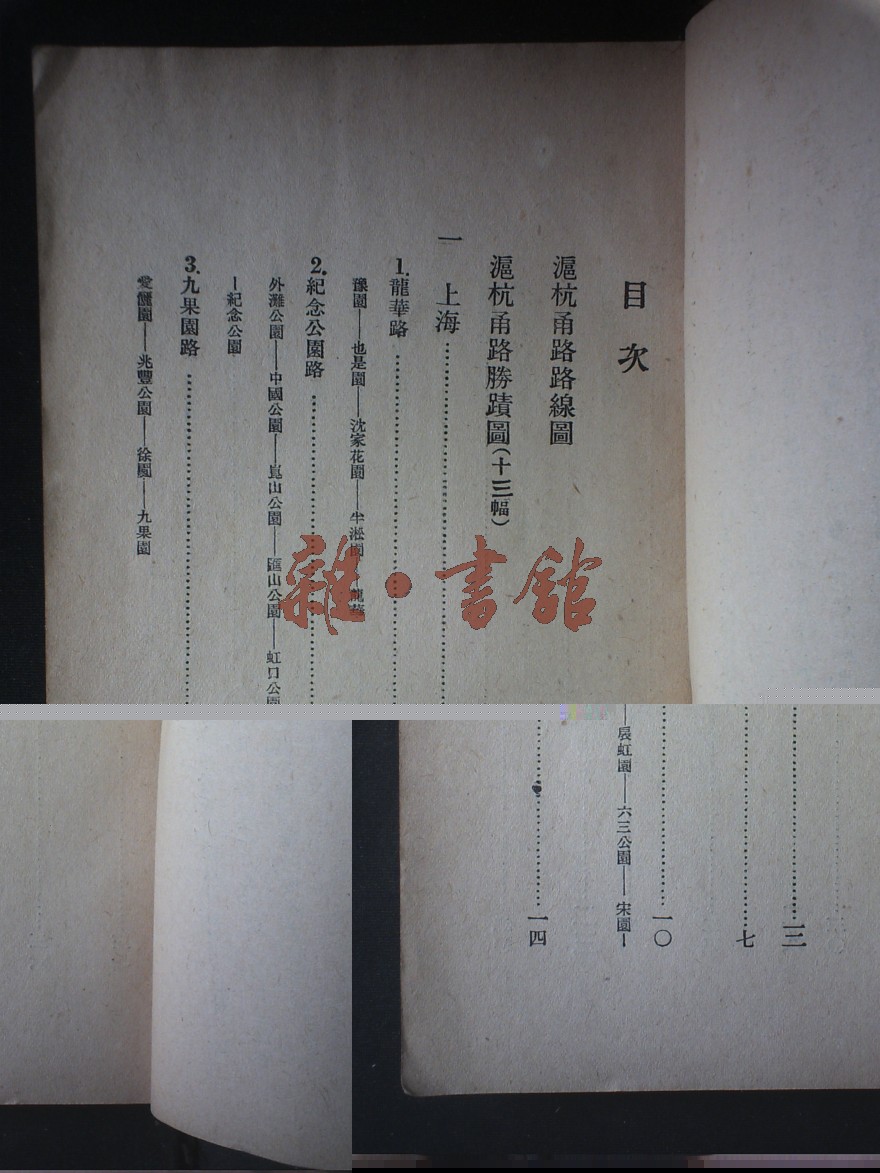 目次
滬杭甬路路線圖
滬杭甬路勝蹟圖(十三幅)
一 上海
1. 龍華路
豫園——也是園——沈家花園——半淞園——龍華
2. 紀念公園路
外灘公園——中國公園——崑山公園——匯山公園——虹口公園
—紀念公園
3. 九果園路
愛儷園——兆豐公園——徐園——九果園
雜·書館
三
七
一〇
——展虹園——六三公園——宋園—
一四